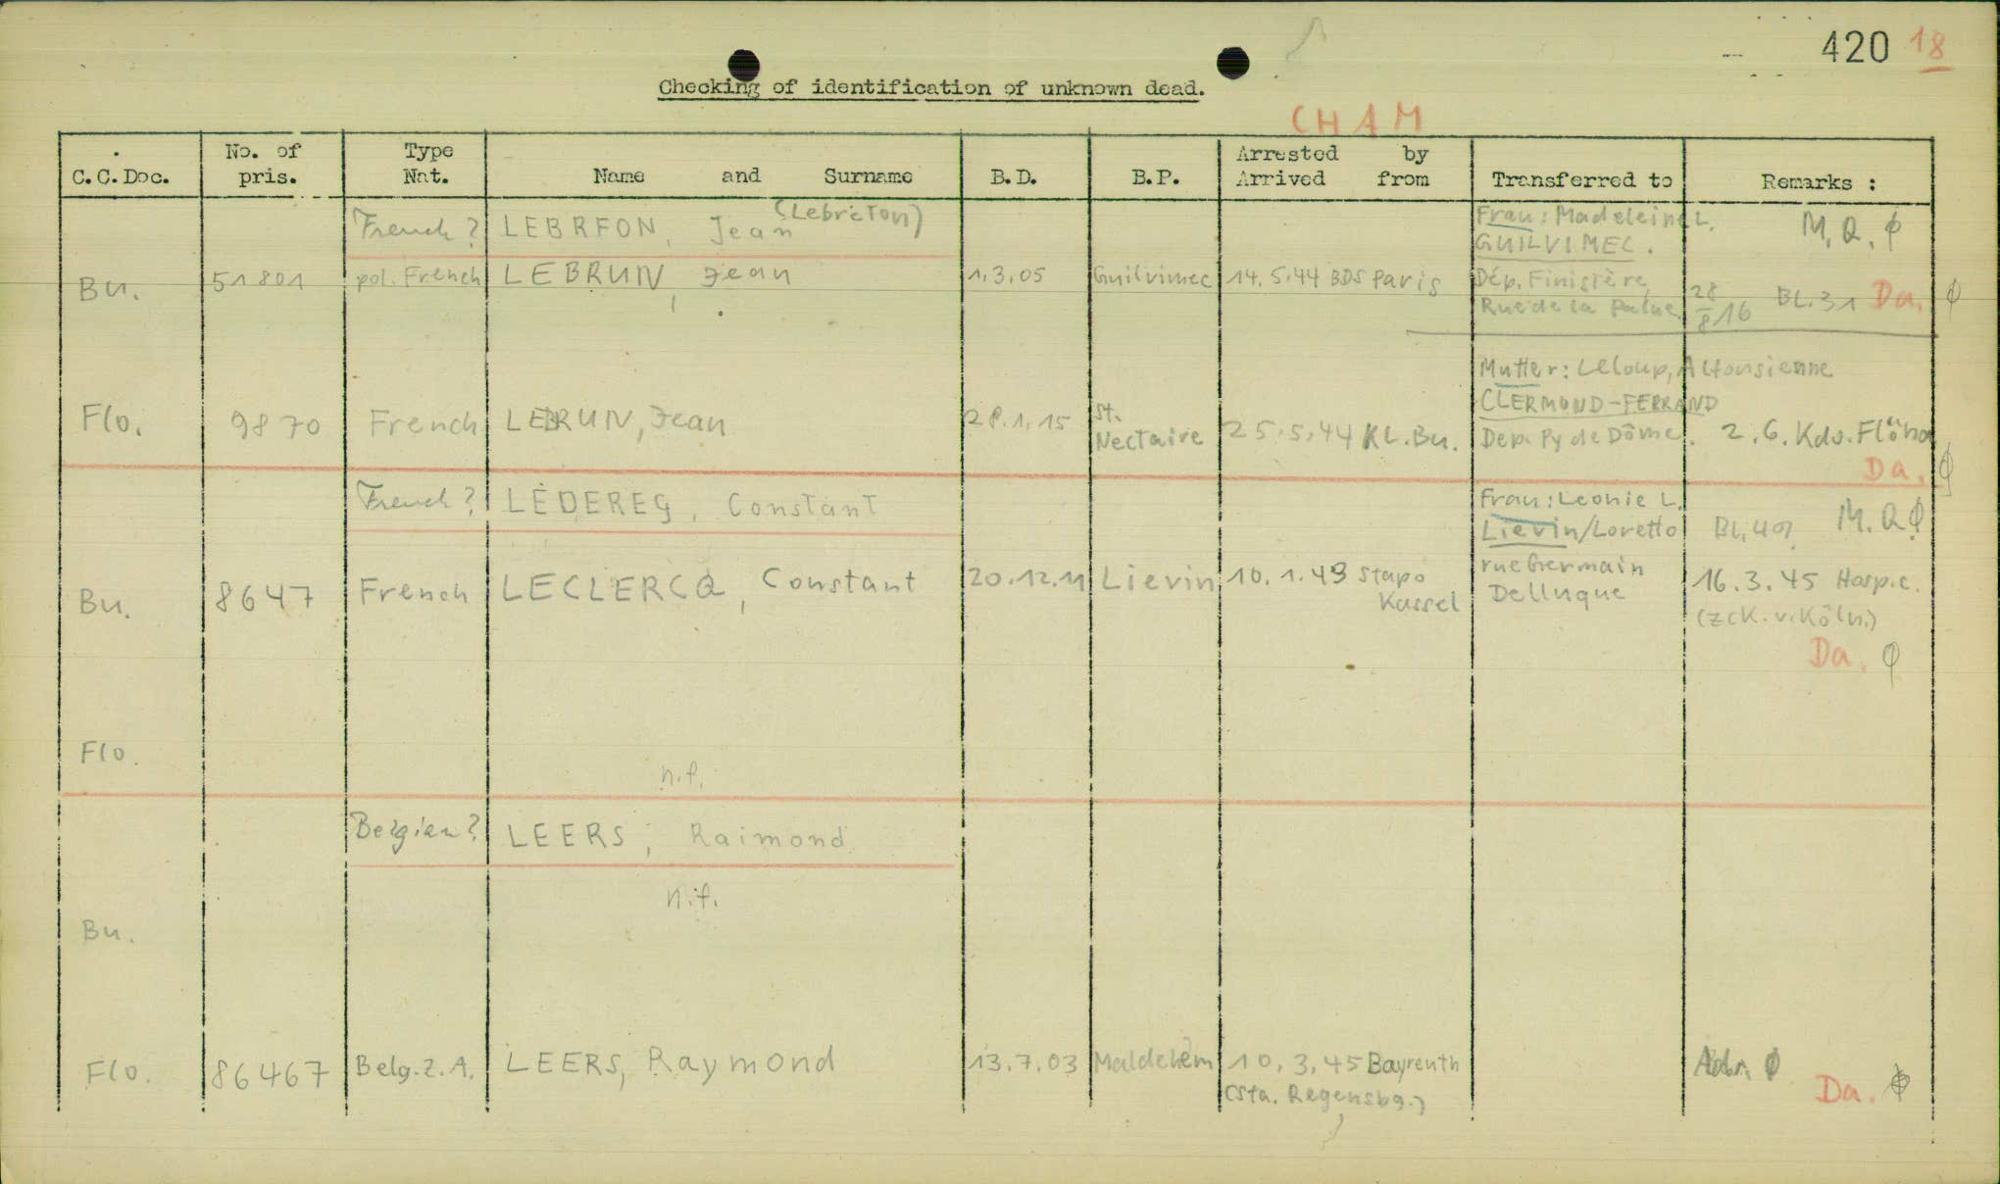 420 18
Checking of identification of unknown dead.
CHAM
C.C.Doc. No. of pris. Type Nat. Name and Surname B.D. B.P. Arrested by Arrived from Transferred to Remarks :
French ? LEBRFON, Jean (Lebreton) Frau: Madeleine L. M.Q. ϕ
GUILVIMEC.
Bu. 51801 pol. French LEBRUN, Jean 1.3.05 Guilvimec 14.5.44 BDS Paris Dép. Finistère, 28/8 16 BL.31 Da. ϕ
Rue de la Palue
Mutter: Leloup, Altonsienne
CLERMOND-FERRAND
Flo. 9870 French LEBRUN, Jean 28.1.15 St. Nectaire 25.5.44 KL.Bu. Dep. Py de Dôme. 2.6. Kdo. Flöha
Da. ϕ
French ? LEDEREG, Constant Frau: Leonie L. M.Q ϕ
Lievin/Loretto
Bu. 8647 French LECLERCQ, Constant 20.12.11 Lievin 10.1.43 Stapo Kassel rue Germain Delluque 16.3.45 Hosp.c.
(zck. v. Köln.)
Da. ϕ
Flo. n.f.
Belgien? LEERS, Raimond
n.f.
Bu.
Flo. 86467 Belg.Z.A. LEERS, Raymond 13.7.03 Maldehem 10.3.45 Bayreuth ϕ
(Sta. Regensbg.) Da. ϕ